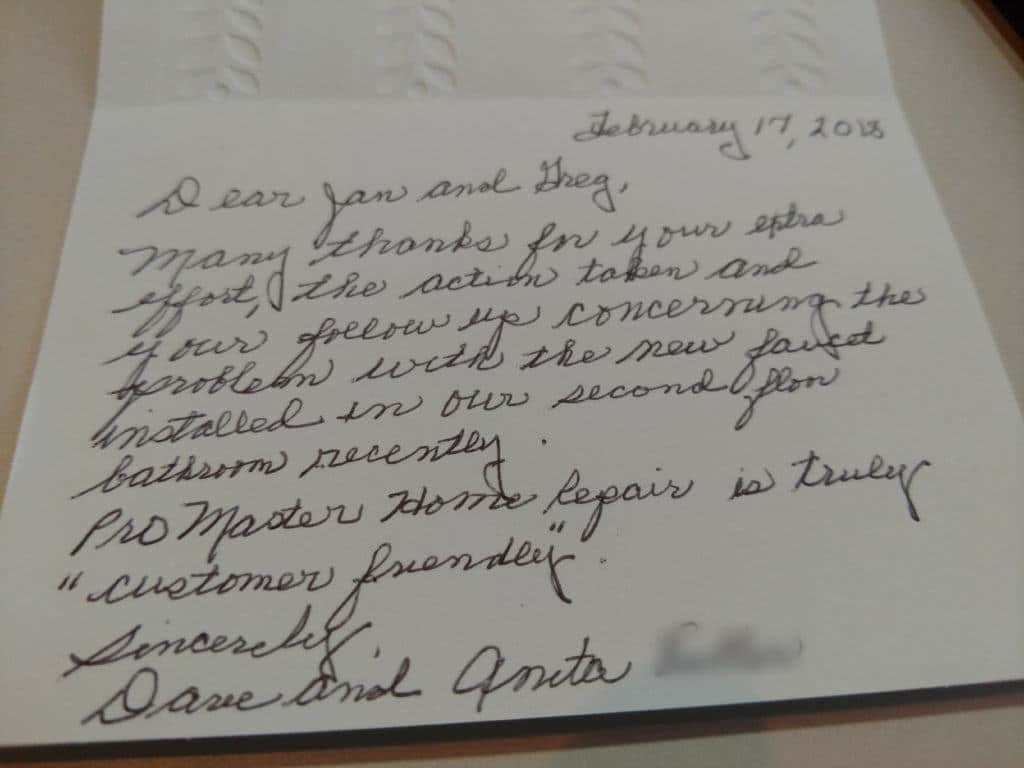 February 17, 2018
Dear Jan and Greg,
Many thanks for your extra
effort, the action taken and
your follow up concerning the
problem with the new faucet
installed in our second floor
bathroom recently.
Pro Master Home Repair is truly
"customer friendly".
Sincerely,
Dave and Anita